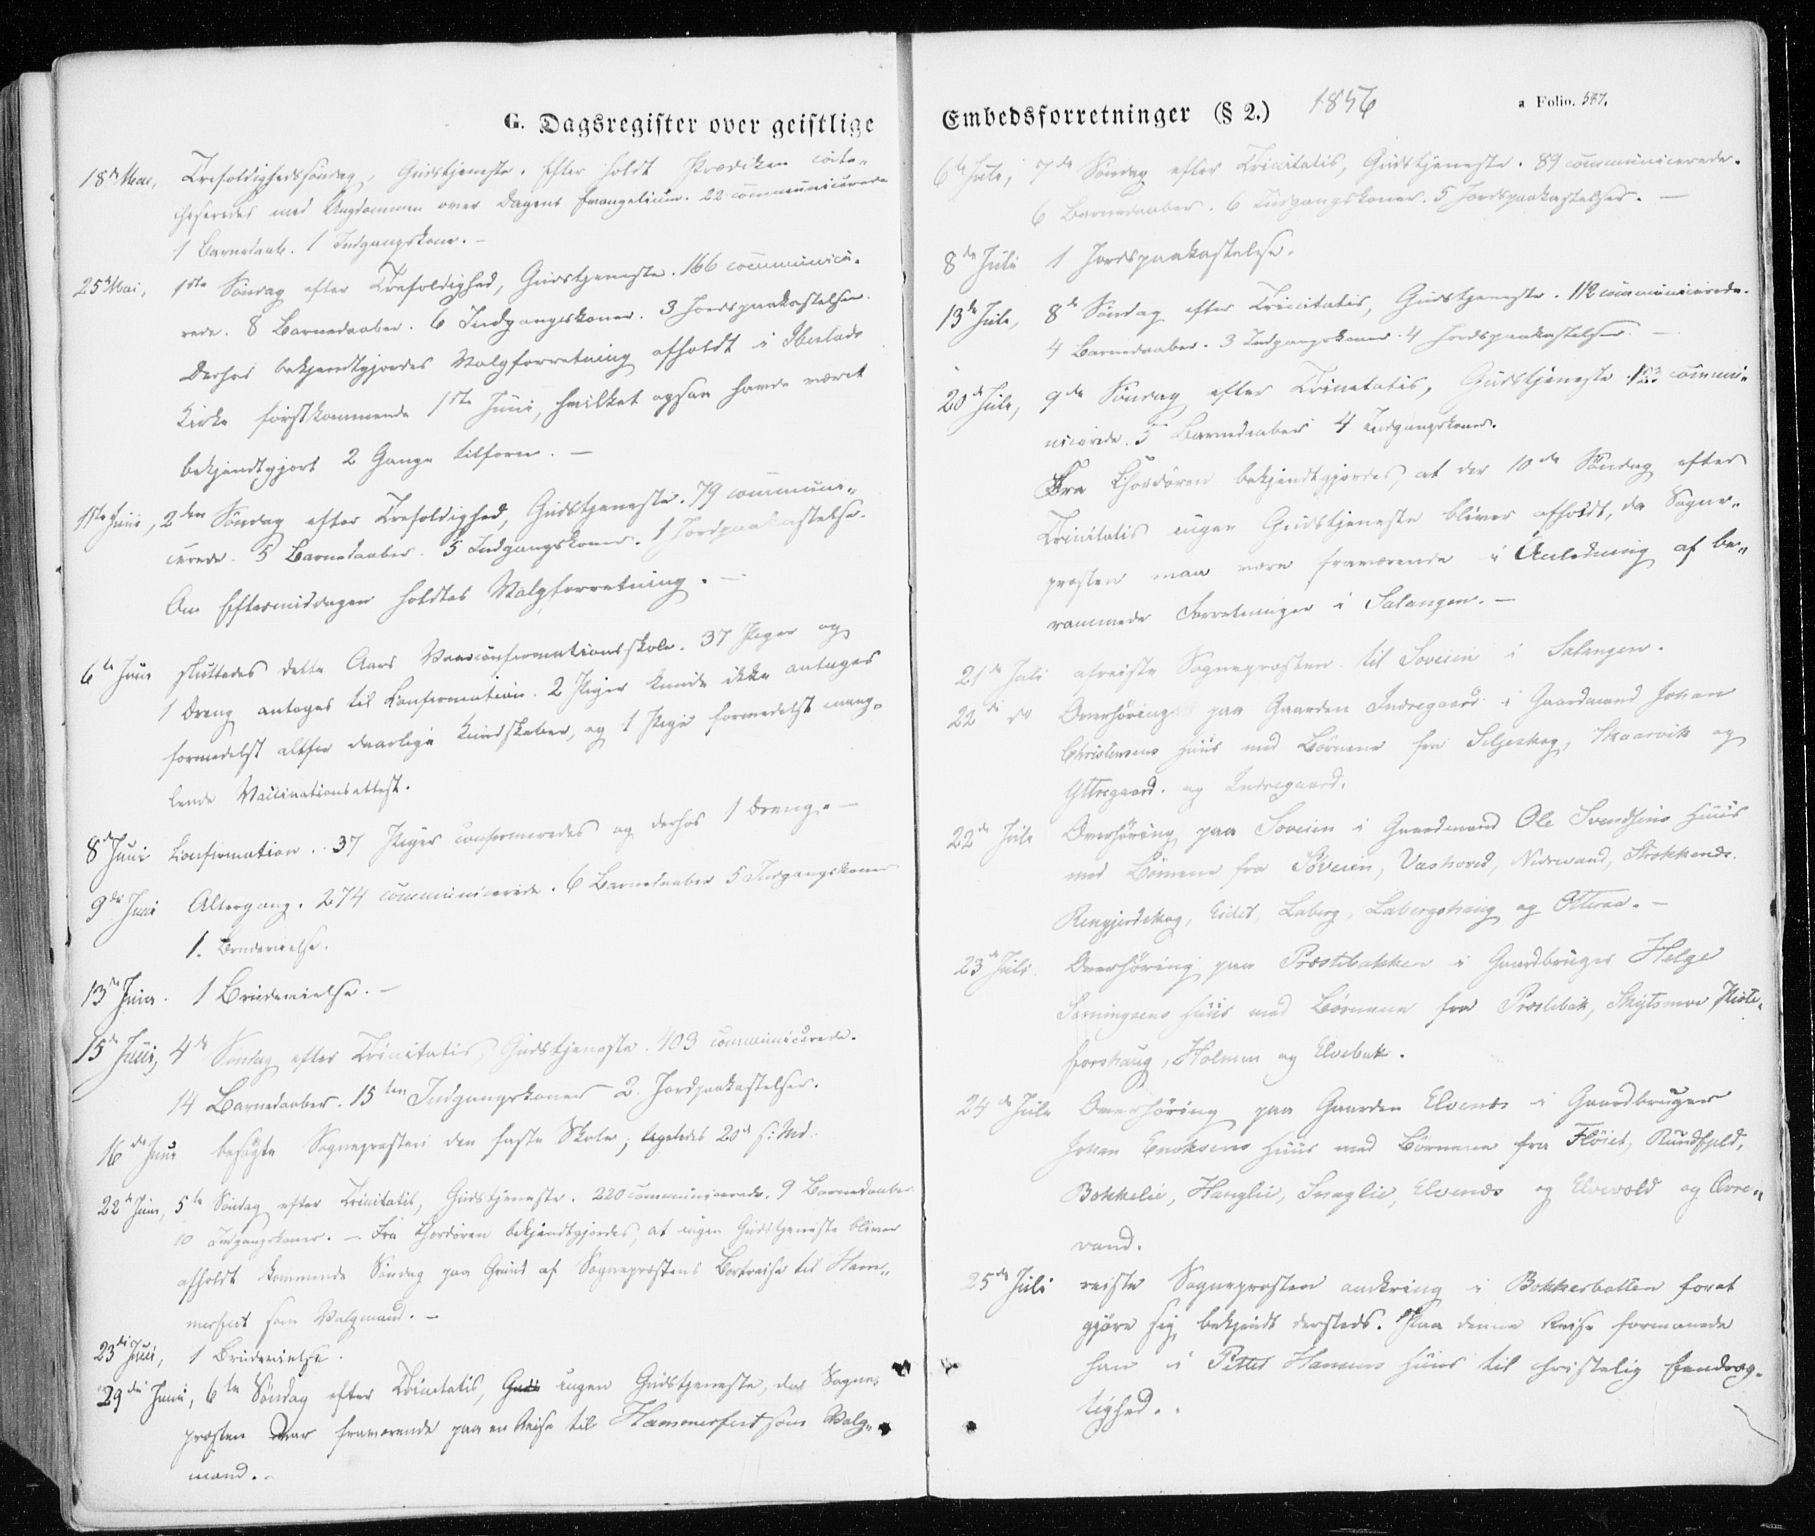 G. Dagsregister over geistlige
18de Mai, Trefoldighedssøndag, Gudstjeneste. Efter holdt Prædiken cate-
chiseredes med Ungdommen over Dagens Evangelium. 22 communicerede
1 Barnedaab. 1 Indgangskone. –
25de Mai, 1ste Søndag efter Trefoldighed, Gudstjeneste. 166 communice-
rede. 8 Barnedaaber. 6 Indgangskoner. 3 Jordspaakastelser.
Derhos bekjendtgjordes Valgforretning afholdt i Ibestads
Kirke førstkommende 1ste Juni, hvilket ogsaa havde været
bekjendtgjort 2 Gange tilforn. –
1ste Juni, 2den Søndag efter Trefoldighed, Gudstjeneste. 79 communi-
cerede. 5 Barnedaaber. 5 Indgangskoner. 1 Jordpaakastelse.
Om Eftermiddagen holdtes Valgforretning. –
6te Juni sluttedes dette Aars Vaarconfirmationsskole. 37 Piger og
1 Dreng antoges til Confirmation. 2 Piger kunde ikke antages
formedelst altfor daarlige Kundskaber, og 1 Pige formedelst mang-
lende Vaccinationsattest.
8de Juni Confirmation. 37 Piger confirmeredes og derhos 1 Dreng. –
9de Juni Altergang. 274 communicerede. 6 Barnedaaber 5 Indgangskoner
1. Brudevielse.
13de Juni. 1 Brudevielse. –
15de Juni, 4de Søndag efter Trinitatis, Gudstjeneste. 403 communicerede.
14 Barnedaaber. 15ten Indgangskoner 2. Jordpaakastelser.
16de Juni besøgte Sognepræsten den faste Skole, ligeledes 20de s: Md.
22de Juni, 5te Søndag efter Trinitatis, Gudstjeneste. 220 communicerede. 9 Barnedaaber
10 Indgangskoner. – Fra Chordøren bekjendtgjordes, at ingen Gudstjeneste bliver
afholdt kommende Søndag paa Grund af Sognepræstens Bortreise til Ham-
merfest som Valgmand. –
23de Juni, 1 Brudevielse.
29de Juni, 6te Søndag efter Trinitatis, Guds ingen Gudstjeneste, da Sogne-
præsten var fraværende paa en Reise til Hammerfest som Valg-
mand. –
Embedsforretninger (§ 2.) 1856
a Folio. 567.
6te Juli, 7de Søndag efter Trinitatis, Gudstjeneste. 89 communicerede.
6 Barnedaaber. 6 Indgangskoner. 5 Jordspaakastelser. –
8de Juli 1 Jordspaakastelse.
13de Juli, 8de Søndag efter Trinitatis, Gudstjeneste. 112 communicerede.
4 Barnedaaber. 3 Indgangskoner. 4 Jordspaakastelser. –
20de Juli, 9de Søndag efter Trinitatis, Gudstjeneste. 123 commu-
nicerede. 5 Barnedaaber 4 Indgangskoner.
Fra Chordøren bekjendtgjordes, at der 10de Søndag efter
Trinitatis ingen Gudstjeneste bliver afholdt, da Sogne-
præsten maa være fraværende i Anledning af be-
rammede Forretninger i Salangen. –
21de Juli afreiste Sognepræsten til Soveien i Salangen.
22de do Overhøring paa Gaarden Indregaard i Gaardmand Johan
Christensens Huus med Børnene fra Seljeskog, Skaarvik og
Yttregaard. og Indregaard.
22de Juli Overhøring paa Soveien i Gaardmand Ole Svendsens Huus
med Børnene fra Søveien, Vashoved, Nedrevand, Strokkenæs.
Rengjerdskog, Eidet, Laberg, Labergshaug og Otteraa. –
23de Juli. Overhøring paa Præstebakken i Gaardbruger Helge
Huus med Børnene fra Præstebak, Skytsmoe,
forshaug, Holmen og Elvebak.
24de Juli Overhøring paa Gaarden Elvenæs i Gaardbruger
Johan Enoksens Huus med Børnene fra Fløiet, Rundfjeld,
Bokkelie, Hanglie, Snoglie, Elvenæs og Elvevold og Øvre-
vand.
25de Juli reiste Sognepræsten omkring i Bokkerbotten forat
gjøre sig bekjendt dersteds. Paa denne Reise formanede
han i Petter Hansens Huus til christelig Eendræg-
tighed. .